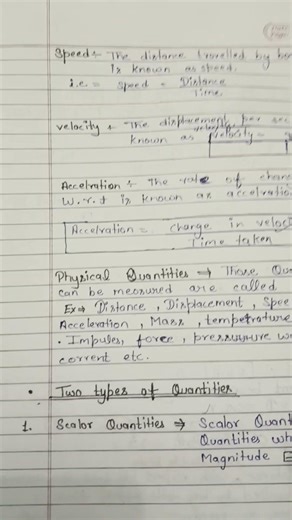 Speed :- The distance travelled by
Is known as speed.
i.e. = Speed = Distance
Time
velocity :- The displacement per sec
known as velocity =
Accelration :- The rate of chan
w.r.t is known as accelratio
Accelration = change in veloc
Time taken
Physical Quantities ⇒ Those Qu
can be measured are called
Ex⇒ Distance, Displacement, Spee
Acceleration, Mass, temperature
Impules, force, pressuure w
corrent etc.
• Two types of Quantities
1. Scalor Quantities ⇒ Scalor Quant
Quantities wh
Magnitude